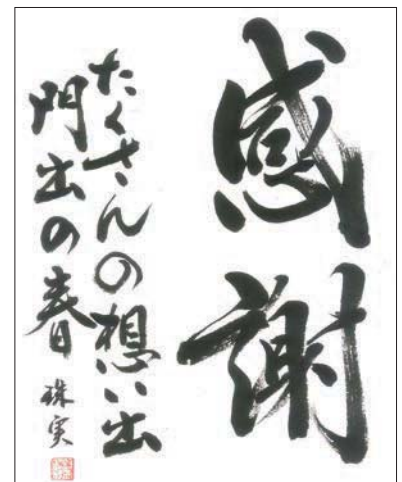 感謝
たくさんの想い出
門出の春
珠実